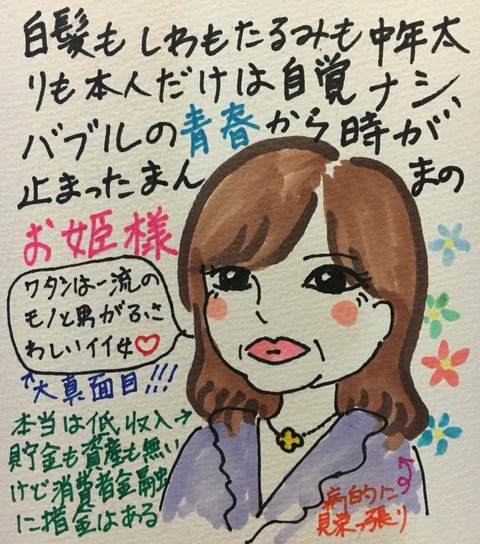 白髪もしわもたるみも中年太
りも本人だけは自覚ナシ、
バブルの青春から時が
止まったまんまの
お姫様
ワタシは一流の
モノと男がふさ
わしいイイ女♡
↑大真面目!!!
本当は低収入→
貯金も資産も無い
けど消費者金融
に借金はある
病的に
見栄っ張り